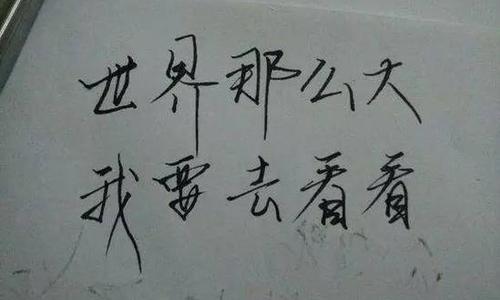 世界那么大
我要去看看